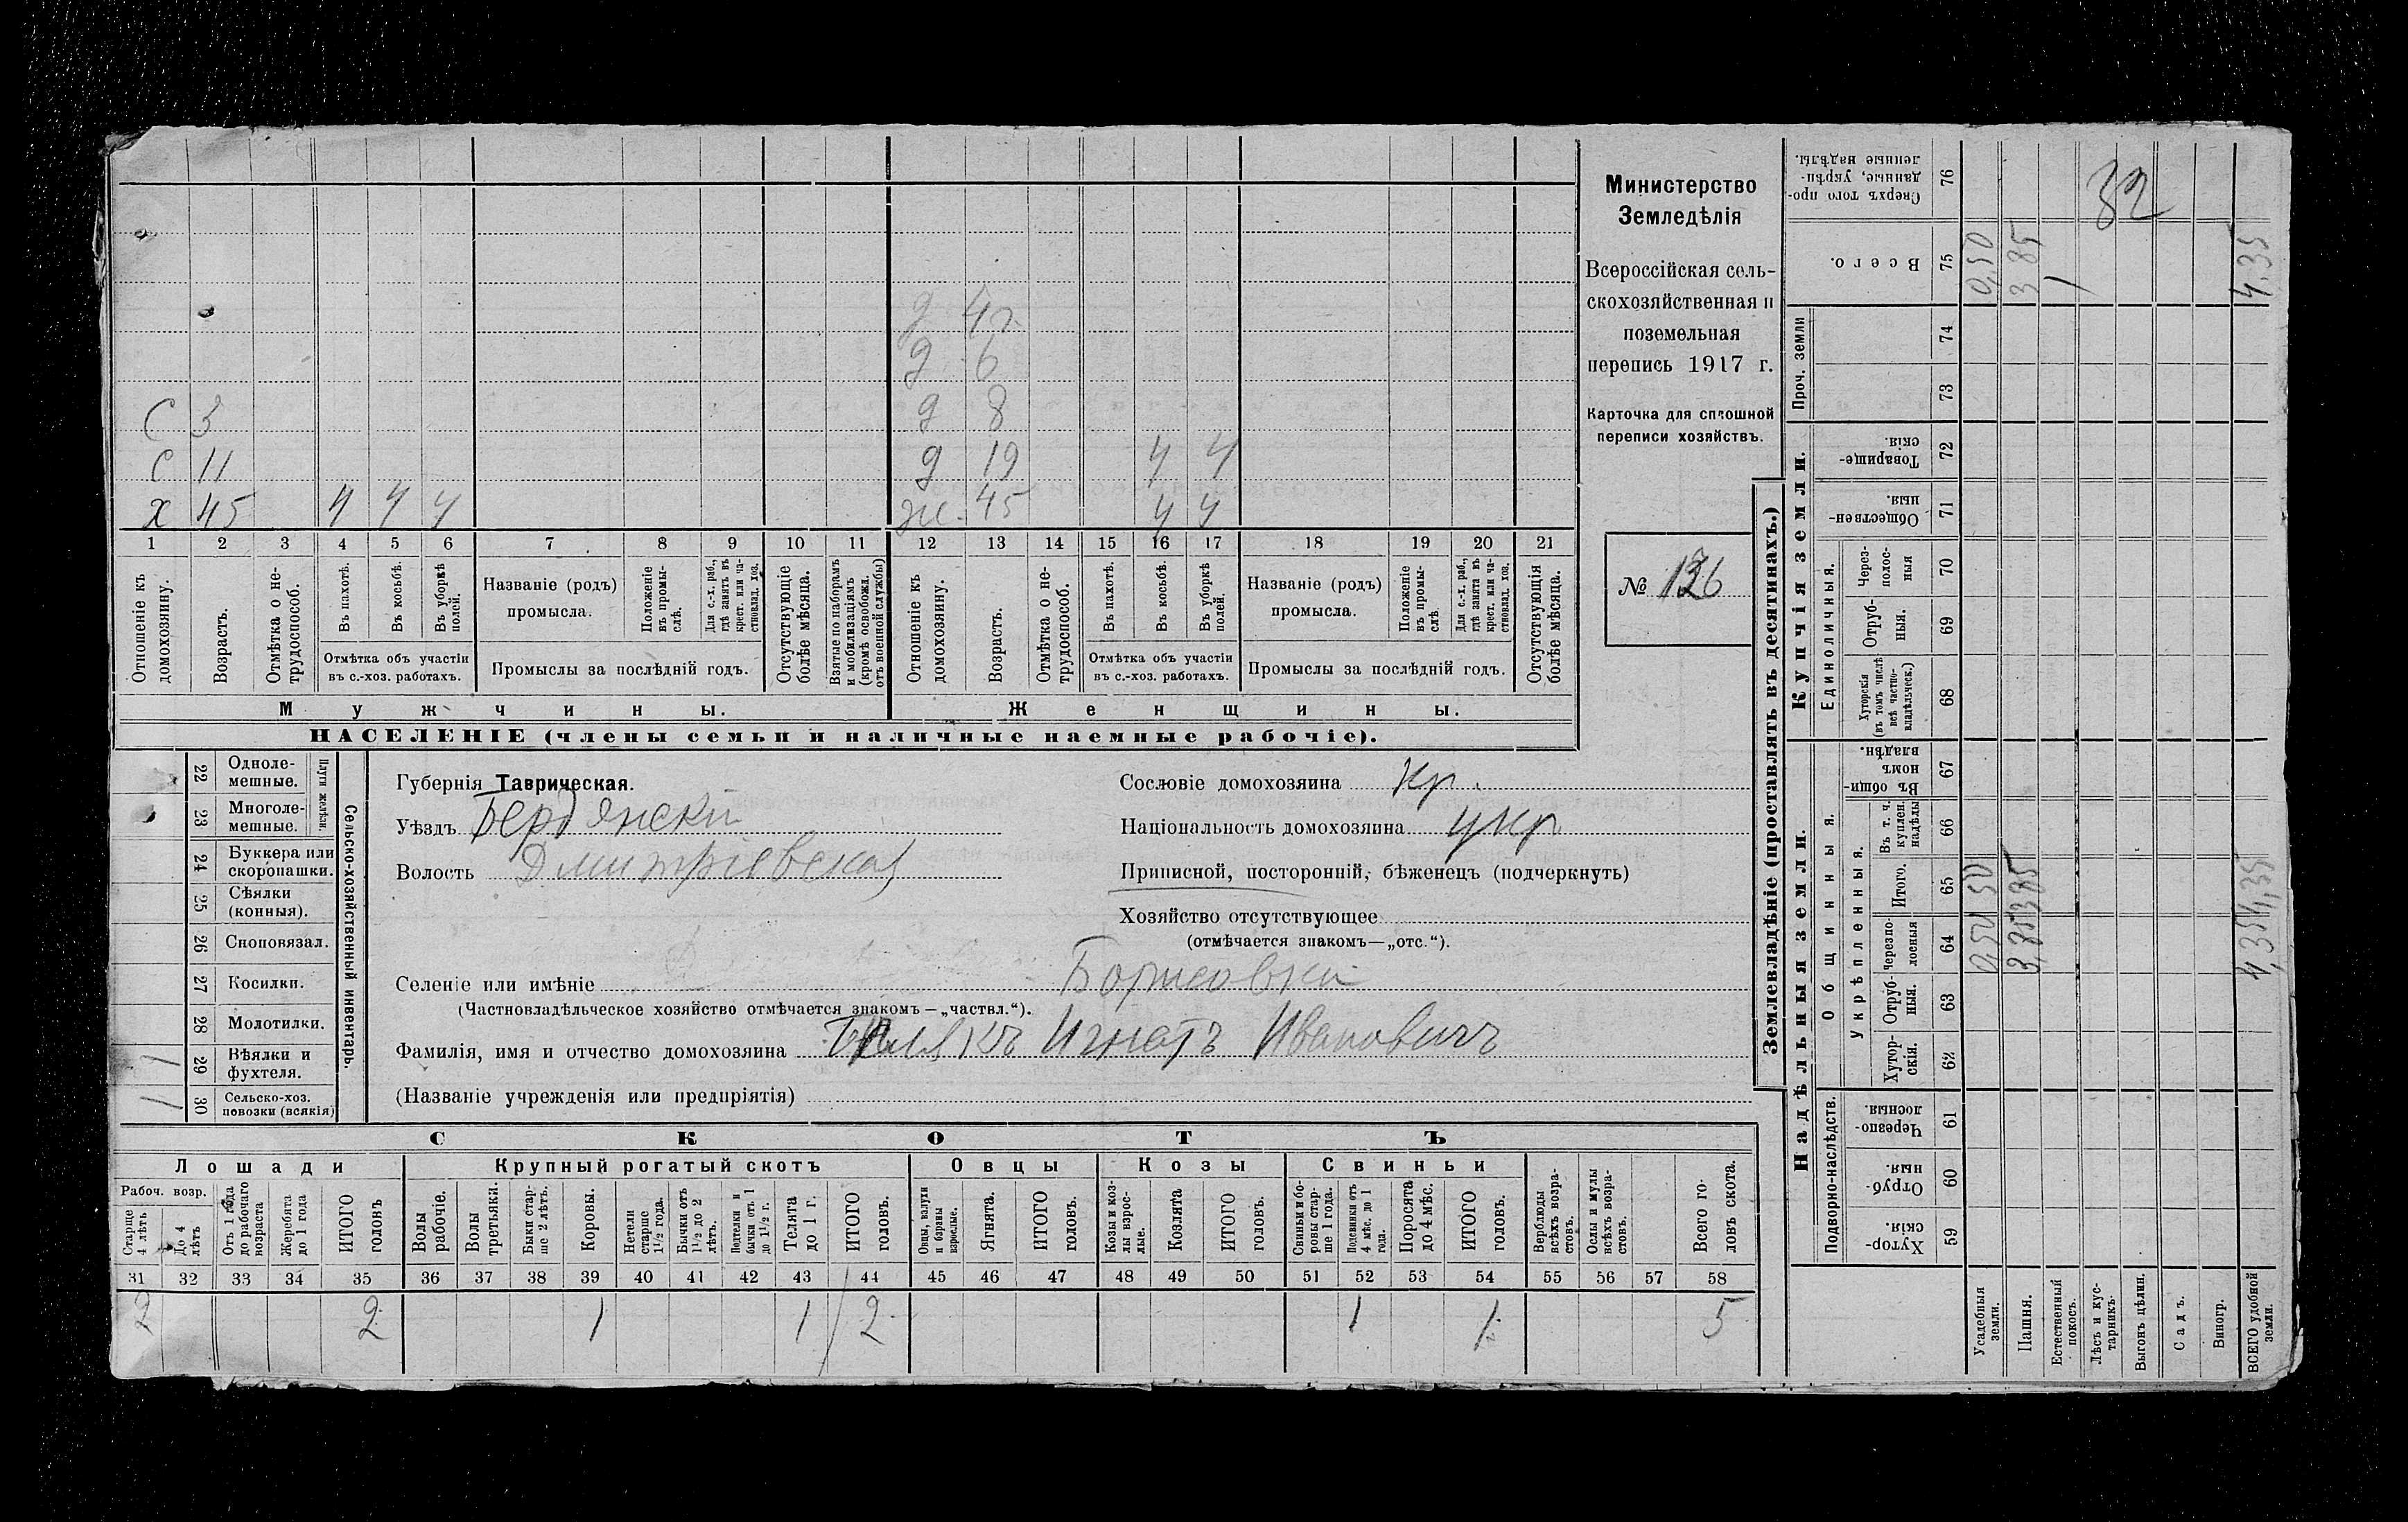 Министерство
Земледѣлія
Всероссійская сель-
скохозяйственная и
поземельная
перепись 1917 г.
Карточка для сплошной
переписи хозяйствъ.
№ 136
д 4 г.
д 6
С 3 д 8
С 11 д 19 ч ч
х 45 ч ч ч ж. 45 ч ч
1 2 3 4 5 6 7 8 9 10 11 12 13 14 15 16 17 18 19 20 21
Отношеніе къ домохозяину.
Возрастъ.
Отмѣтка о не-трудоспособ.
Въ пахотѣ.
Въ косьбѣ.
Въ уборкѣ полей.
Отмѣтка объ участіи
въ с.-хоз. работахъ.
Названіе (родъ)
промысла.
Положеніе въ промы-слѣ.
Для с.-х. раб., гдѣ занятъ въ крест. или ча-стновлад. хоз.
Промыслы за послѣдній годъ.
Отсутствующіе болѣе мѣсяца.
Взятые по наборамъ и мобилизаціямъ (кромѣ освобожд. отъ военной службы)
Отношеніе къ домохозяину.
Возрастъ.
Отмѣтка о не-трудоспособ.
Въ пахотѣ.
Въ косьбѣ.
Въ уборкѣ полей.
Отмѣтка объ участіи
въ с.-хоз. работахъ.
Названіе (родъ)
промысла.
Положеніе въ промы-слѣ.
Для с.-х. раб., гдѣ занятъ въ крест. или ча-стновлад. хоз.
Промыслы за послѣдній годъ.
Отсутствующія болѣе мѣсяца.
Мужчины. Женщины.
НАСЕЛЕНІЕ (члены семьи и наличные наемные рабочіе).
22 Одноле-мешные.
23 Многоле-мешные.
Плуги желѣзн.
24 Буккера или скоропашки.
25 Сѣялки (конныя).
26 Сноповязал.
27 Косилки.
28 Молотилки.
1 29 Вѣялки и фухтеля.
1 30 Сельско-хоз. повозки (всякія)
Сельско-хозяйственный инвентарь.
Губернія Таврическая.
Уѣздъ Бердянскій
Волость Дмитріевская
Сословіе домохозяина кр.
Національность домохозяина укр
Приписной, посторонній, бѣженецъ (подчеркнуть)
Хозяйство отсутствующее
(отмѣчается знакомъ—„отс.“).
Селеніе или имѣніе Борисовка
(Частновладѣльческое хозяйство отмѣчается знакомъ—„частвл.“).
Фамилія, имя и отчество домохозяина Игнатъ Ивановичъ
(Названіе учрежденія или предпріятія)
СКОТЪ
Лошади Крупный рогатый скотъ Овцы Козы Свиньи
Рабоч. возр.
Старше 4 лѣтъ
До 4 лѣтъ
Отъ 1 года до рабочаго возраста
Жеребята до 1 года
ИТОГО головъ
Волы рабочіе.
Волы третьяки.
Быки стар-ше 2 лѣтъ.
Коровы.
Нетели старше 1½ года.
Бычки отъ 1½ до 2 лѣтъ.
Подтелки и бычки отъ 1 до 1½ г.
Телята до 1 г.
ИТОГО головъ.
Овцы, валухи и бараны взрослые.
Ягнята.
ИТОГО головъ.
Козы и коз-лы взрос-лые.
Козлята
ИТОГО головъ.
Свиньи и бо-ровы стар-ше 1 года.
Подсвинки отъ 4 мѣс. до 1 года.
Поросята до 4 мѣс.
ИТОГО головъ.
Верблюды всѣхъ возра-стовъ.
Ослы и мулы всѣхъ возра-стовъ.
Всего го-ловъ скота.
31 32 33 34 35 36 37 38 39 40 41 42 43 44 45 46 47 48 49 50 51 52 53 54 55 56 57 58
2 2 1 1 2 1 1 5
Землевладѣніе (проставлять въ десятинахъ.)
Надѣльныя земли. Купчія земли. Проч. земли
Подворно-наслѣдств. Общинныя. Единоличныя.
Укрѣпленныя.
59 Хутор-скія.
60 Отруб-ныя.
61 Черезпо-лосныя.
62 Хутор-скія.
63 Отруб-ныя.
64 Черезпо-лосныя
65 Итого.
66 Въ т. ч. куплен. надѣлы
67 Въ общи-номъ владѣн.
68 Хуторскія (въ томъ числѣ всѣ частно-владѣльческ.)
69 Отруб-ныя.
70 Через-полос-ныя
71 Обществен-ныя.
72 Товарище-скія.
73
74
75 Всего.
76 Сверхъ того про-данные, укрѣп-ленные надѣлы.
Усадебныя земли. 0,50 0,50 0,50
Пашня. 3,85 3,85 3 85
Естественный покосъ.
Лѣсъ и кус-тарникъ.
Выгонъ цѣлин.
Садъ.
Виногр.
ВСЕГО удобной земли. 4,35 4,35 4,35
32